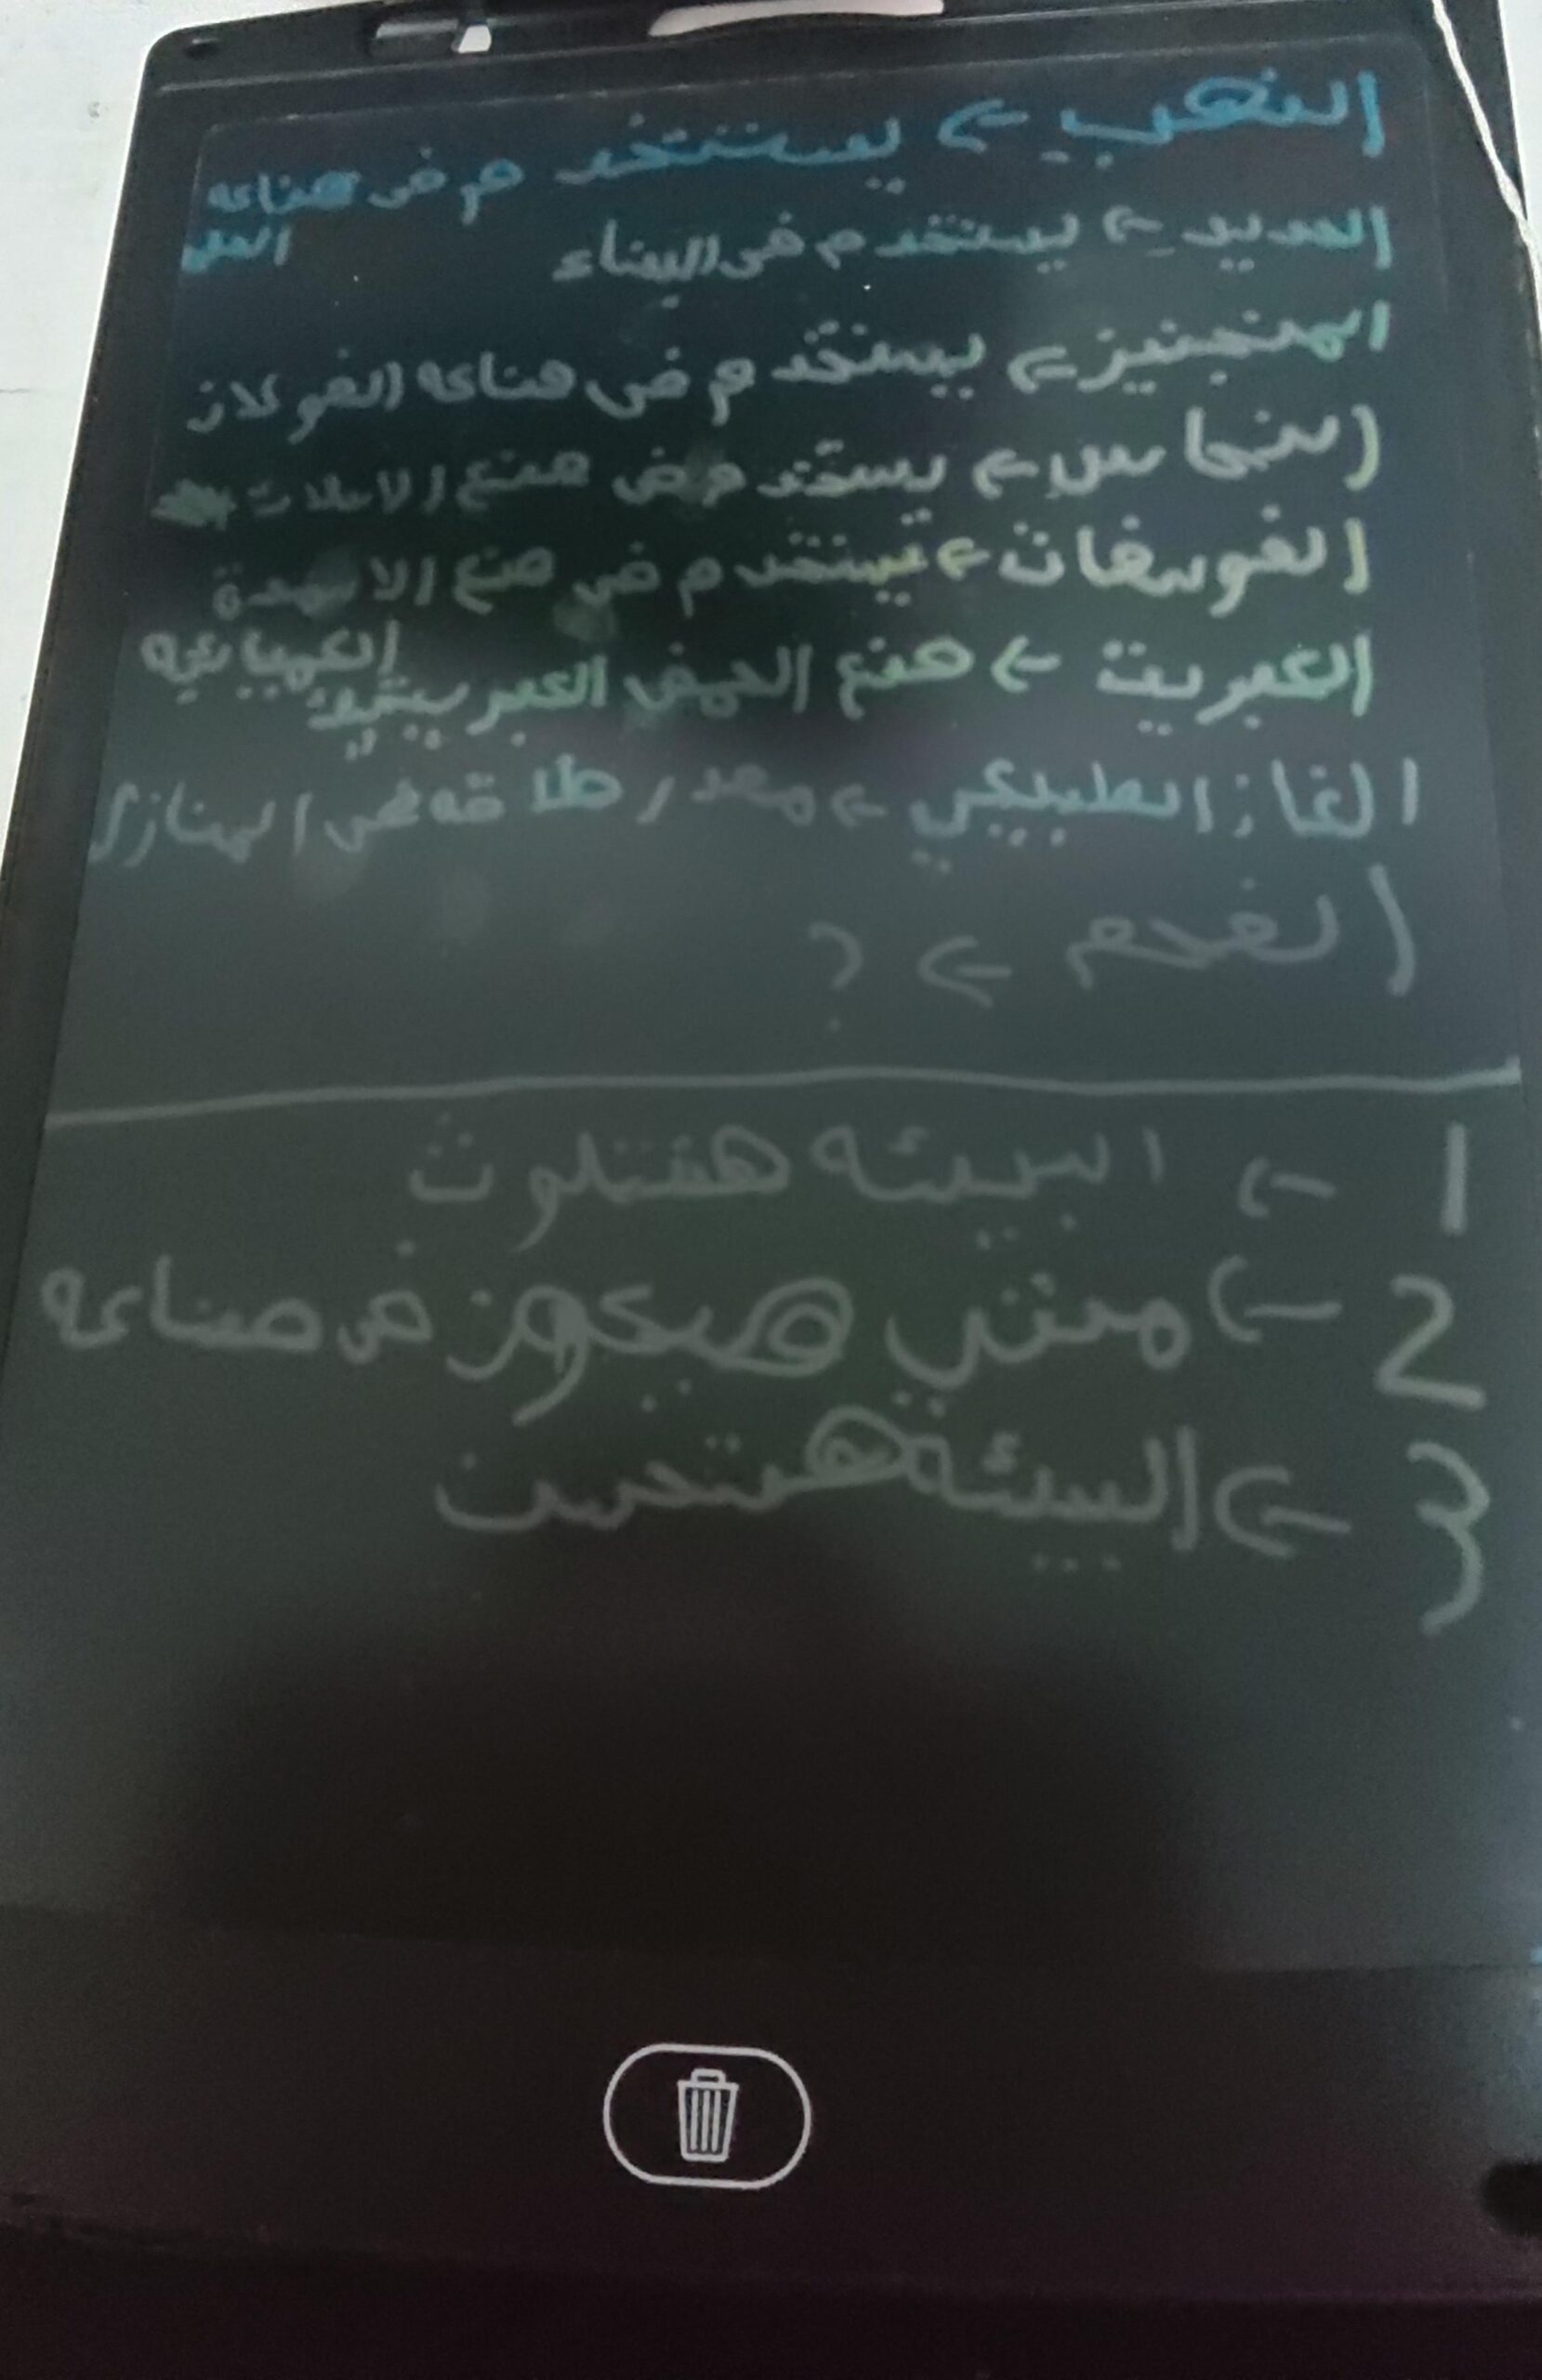 الذهب ← يستخدم فى صناعه
الحلى
الحديد ← يستخدم فى البناء
المنجنيز ← يستخدم فى صناعه الفولاز
النحاس ← يستخدم فى صنع الاسلاك
الفوسفات ← يستخدم فى صنع الاسمدة
الكيميائيه
الكبريت ← صنع الحمض الكبريتيك
الغاز الطبيعي ← مصدر طاقه فى المنازل
الفحم ← ؟
1 ← البيئه هتتلوث
2 ← مش هيكوز فى صناعه
3 ← البيئه هتتحسن